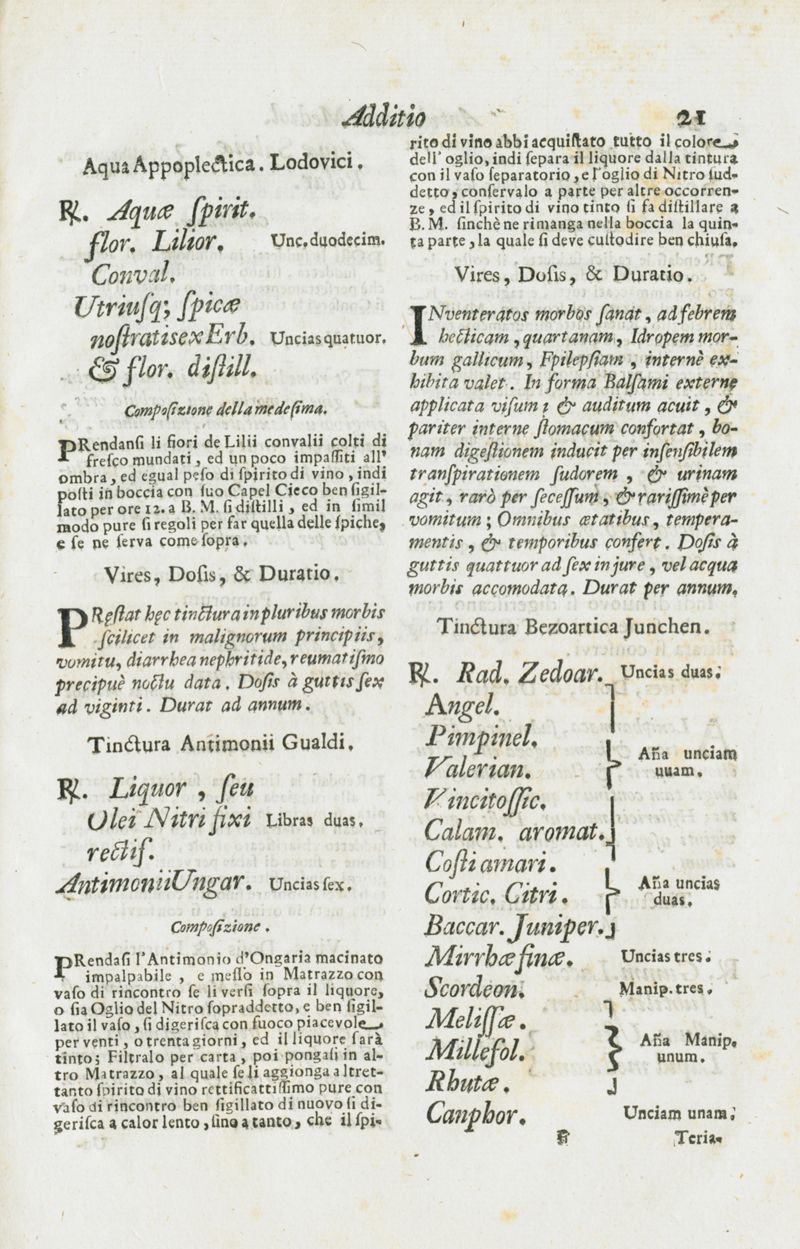 Additio 21
Aqua Appoplectica. Lodovici.
℞. Aquæ ſpirit.
flor. Lilior. Unc. duodecim.
Conval.
Utriuſq; ſpicæ
noſtratis ex Erb. Uncias quatuor.
& flor. diſtill.
Compoſizione della medeſima.
PRendanſi li fiori de Lilii convalii colti di
freſco mundati, ed un poco impaſſiti all'
ombra, ed egual peſo di ſpirito di vino, indi
poſti in boccia con ſuo Capel Cieco ben ſigil-
lato per ore 12. a B. M. ſi diſtilli, ed in ſimil
modo pure ſi regoli per far quella delle ſpiche,
e ſe ne ſerva come ſopra.
Vires, Doſis, & Duratio.
PRęſtat hęc tinctura in pluribus morbis
ſcilicet in malignorum principiis,
vomitu, diarrhea nephritide, reumatiſmo
precipuè noctu data. Doſis à guttis ſex
ad viginti. Durat ad annum.
Tinctura Antimonii Gualdi.
℞. Liquor, ſeu
Olei Nitri fixi Libras duas.
rectif.
Antimonii Ungar. Uncias ſex.
Compoſizione.
PRendaſi l'Antimonio d'Ongaria macinato
impalpabile, e meſſo in Matrazzo con
vaſo di rincontro ſe li verſi ſopra il liquore,
o ſia Oglio del Nitro ſopraddetto, e ben ſigil-
lato il vaſo, ſi digeriſca con fuoco piacevole
per venti, o trenta giorni, ed il liquore ſarà
tinto; Filtralo per carta, poi pongaſi in al-
tro Matrazzo, al quale ſe li aggionga altret-
tanto ſpirito di vino rettificattiſſimo pure con
vaſo di rincontro ben ſigillato di nuovo ſi di-
geriſca a calor lento, ſino a tanto, che il ſpi-
rito di vino abbi acquiſtato tutto il colore
dell' oglio, indi ſepara il liquore dalla tintura
con il vaſo ſeparatorio, e l'oglio di Nitro ſud-
detto, conſervalo a parte per altre occorren-
ze, ed il ſpirito di vino tinto ſi fa diſtillare a
B. M. ſinchè ne rimanga nella boccia la quin-
ta parte, la quale ſi deve cuſtodire ben chiuſa.
Vires, Doſis, & Duratio.
INveteratos morbos ſanat, ad febrem
hecticam, quartanam, Idropem mor-
bum gallicum, Epilepſiam, internè ex-
hibita valet. In forma Balſami externe
applicata viſum; & auditum acuit, &
pariter interne ſtomacum confortat, bo-
nam digeſtionem inducit per inſenſibilem
tranſpirationem ſudorem, & urinam
agit, rarò per ſeceſſum, & rariſſimè per
vomitum; Omnibus ætatibus, tempera-
mentis, & temporibus confert. Doſis à
guttis quattuor ad ſex in jure, vel acqua
morbis accomodata. Durat per annum.
Tinctura Bezoartica Junchen.
℞. Rad. Zedoar. Uncias duas.
Angel.
Pimpinel.
Valerian. Aña unciam uuam.
Vincitoſſic.
Calam. aromat.
Coſti amari.
Cortic. Citri. Aña uncias duas.
Baccar. Juniper.
Mirrhæ finæ. Uncias tres.
Scordeon. Manip. tres.
Meliſſæ.
Millefol. Aña Manip. unum.
Rhutæ.
Canphor. Unciam unam.
Teria-